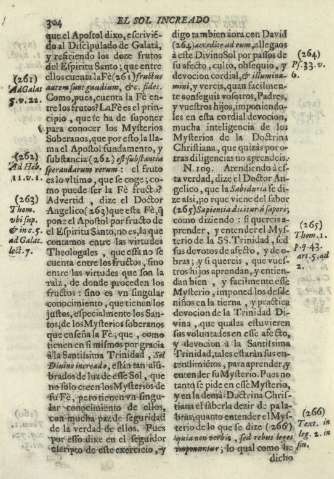 304 EL SOL INCREADO
que el Apostol dixo, escrivié-
do al Discipulado de Galatá,
y refiriendo los doze frutos
del Espiritu Santo; que entre
ellos cuenta la Fè (261) fructus
autem sunt gaudium, &c. fides.
Como, pues, cuenta la Fè en-
tre los frutos? La Fè es el prin-
cipio, que se ha de suponer
para conocer los Mysterios
Soberanos, que por esto la lla-
ma el Apostol fundamento, y
substancia (262) est substantia
sperandarum rerum: el fruto
es lo ultimo, que se coge; co-
mo puede ser la Fè fructo?
Advertid, dize el Doctor
Angelico (263) que esta Fè, q
pone el Apostol por fructo de
el Espiritu Santo, no es, la que
contamos entre las virtudes
Theologales, que essa no se
cuenta entre los frutos, sino
entre las virtudes que son la
raiz, de donde proceden los
fructos: sino es vn singular
conocimiento, que tienen los
justos, especialmente los San-
tos, de los Mysterios soberanos
que enseña la Fè; que, como
tienen en si mismos por gracia
à la Santissima Trinidad, Sol
Divino increado, estàn tan alũ-
brados de luz de esse Sol, que
no solo creen los Mysterios de
su Fè, pero tienen vn singu-
lar conocimiento de ellos,
con mucha paz de seguridad
de la verdad de ellos. Pues
por esso dize en el seguidor
el scripto de este exercicio, y
(261)
Ad Galat.
5. v. 22.
(262)
Ad Heb.
11. v. 1.
(263)
Thom.
ubi sup.
& in c. 5.
ad Galat.
lect. 7.
digo tambien aora con David
(264) accedite ad eum, allegaos
à este Divino Sol por passos de
su afecto, culto, obsequio, y
devocion cordial, & illumina-
mini, y vereis, quan facilmen-
te conseguis vosotros, Padres,
y vuestros hijos, imponiendo-
les en esta cordial devocion,
mucha inteligencia de los
Mysterios de la Doctrina
Christiana, que quizás por o-
tras diligencias no aprendeis.
N. 109. Atendiendo à es-
ta verdad, dize el Doctor An-
gelico, que la Sabiduria se di-
ze assi, porque viene del sabor
(265) Sapientia dicitur à sapore;
como diziendo: si quereis a-
prender, y entender el Mys-
terio de la SS. Trinidad, sed
sus devotos de afecto, y de o-
bras; y si quereis, que vues-
tros hijos aprendan, y entien-
dan bien, y facilmente esse
Mysterio, imponedlos desde
niños en la tierna, y practica
devocion de la Trinidad Di-
vina, que quales estuvieren
sus voluntades en esse afecto,
y devocion à la Santissima
Trinidad, tales estaràn sus en-
tendimientos, para aprender, y
entender su Mysterio. Pues no
tanto se pide en esse Mysterio,
y en la demás Doctrina Chris-
tiana el saberla dezir de pala-
bras, quanto entender el Mys-
terio de lo que se dize (266)
quia non verbis, sed rebus leges
imponuntur; lo qual como he
dicho
(264)
Ps. 33. v.
6.
(265)
Thom. 1.
p. q. 43.
art. 5. ad
2.
(266)
Text. in
leg. 2. in
fin.